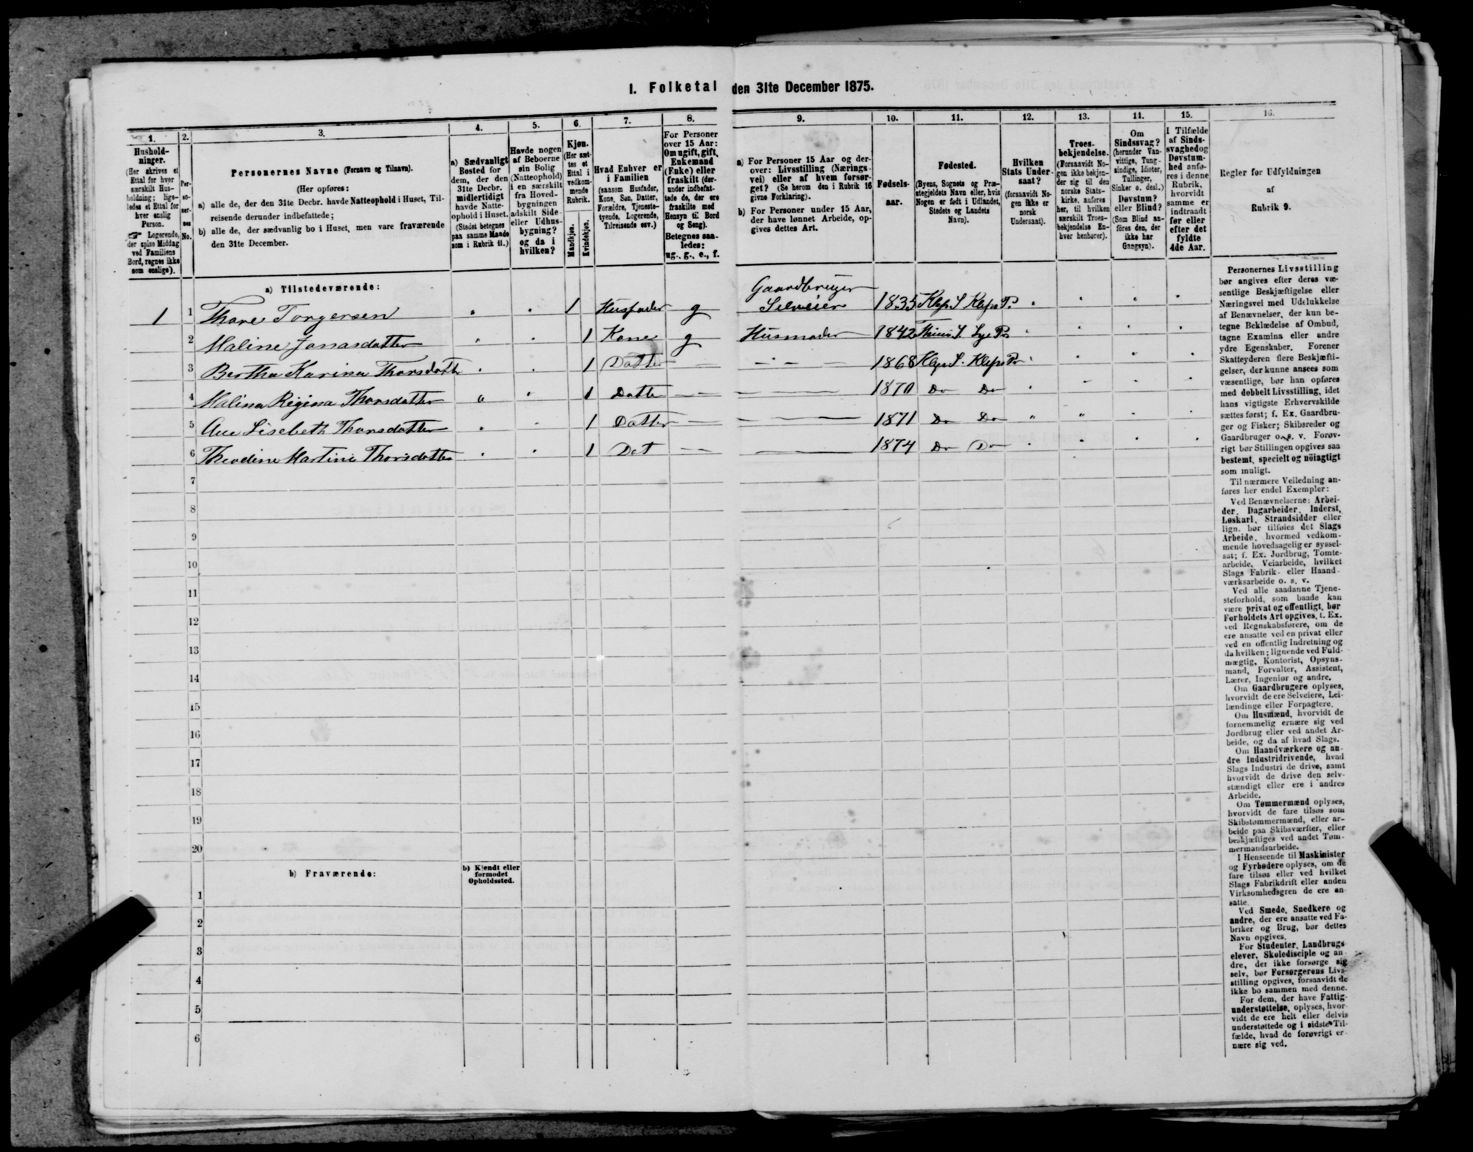 I. Folketal den 31te December 1875.
1. 2. 3. 4. 5. 6. 7. 8. 9. 10. 11. 12. 13. 14. 15. 16.
Hushold-
ninger.
(Her skrives et
Ettal for hver
særskilt Hus-
holdning; lige-
ledes et Ettal for
hver enslig
Person.
☞ Logerende,
der spise Middag
ved Familiens
Bord, regnes ikke
som enslige).
Per-
so-
ner-
nes
No.
Personernes Navne (Fornavn og Tilnavn).
(Her opføres:
a) alle de, der den 31te Decbr. havde Natteophold i Huset, Til-
reisende derunder indbefattede;
b) alle de, der sædvanlig bo i Huset, men vare fraværende
den 31te December.
a) Sædvanligt
Bosted for
dem, der den
31te Decbr.
midlertidigt
havde Natte-
ophold i Huset.
(Stedet betegnes
paa samme Maade
som i Rubrik 11.)
Havde nogen
af Beboerne
sin Bolig
(Natteophold)
i en særskilt
fra Hoved-
bygningen
adskilt Side-
eller Udhus-
bygning?
og da i
hvilken?
Kjøn.
(Her sæt-
tes et
Ettal i
vedkom-
mende
Rubrik.
Mandkjøn.
Kvindekjøn.
Hvad Enhver er
i Familien
(saasom Husfader,
Kone, Søn, Datter,
Forældre, Tjeneste-
tyende, Logerende,
Tilreisende osv.)
For Personer
over 15 Aar:
Om ugift, gift,
Enkemand
(Enke) eller
fraskilt (der-
under indbefat-
tede de, der ere
fraskilte med
Hensyn til Bord
og Seng).
Betegnes saa-
ledes:
ug., g., e., f.
a) For Personer 15 Aar og der-
over: Livsstilling (Nærings-
vei) eller af hvem forsør-
get? (Se herom den i Rubrik 16
givne Forklaring).
b) For Personer under 15 Aar,
der have lønnet Arbeide, op-
gives dettes Art.
Fødsels-
aar.
Fødested.
(Byens, Sognets og Præ-
stegjeldets Navn eller, hvis
Nogen er født i Udlandet,
Stedets og Landets
Navn).
Hvilken
Stats Under-
saat?
(forsaavidt No-
gen ikke er
norsk
Undersaat).
Troes-
bekjendelse.
(Forsaavidt No-
gen ikke bekjen-
der sig til den
norske Stats-
kirke, anføres
her, til hvilken
særskilt Troes-
bekjendelse En-
hver henhører).
Om
Sindssvag?
(herunder Van-
vittige, Tung-
sindige, Idioter,
Tullinger,
Sinker o. desl.)
Døvstum?
eller Blind?
(Som Blind an-
føres den, der
ikke har
Gangsyn).
I Tilfælde
af Sinds-
svaghed og
Døvstum-
hed anfø-
res i denne
Rubrik,
hvorvidt
samme er
indtraadt
før eller
efter det
fyldte
4de Aar.
Regler før Udfyldningen
af
Rubrik 9.
a) Tilstedeværende:
1 1 Thore Torgersen 1 Husfader g Gaardbruger Selveier 1835 Klep S. Klep P.
2 Maline Jonasdatter 1 Kone g Husmoder 1842 Lye P.
3 Bertha Karina Thorsdatter 1 Datter 1868 Klep S. Klep P.
4 Malina Regina Thorsdatter 1 Datter 1870 Do Do
5 Ane Lisebeth Thorsdatter 1 Datter 1871 Do Do
6 Theodine Martine Thorsdatter 1 Dat 1874 Do Do
7
8
9
10
11
12
13
14
15
16
17
18
19
20
b) Fraværende:
b) Kjendt eller
formodet
Opholdssted.
1
2
3
4
5
6
Personernes Livsstilling
bør angives efter deres væ-
sentlige Beskjæftigelse eller
Næringsvei med Udelukkelse
af Benævnelser, der kun be-
tegne Beklædelse af Ombud,
tagne Examina eller andre
ydre Egenskaber. Forener
Skatteyderen flere Beskjæfti-
gelser, der kunne ansees som
væsentlige, bør han opføres
med dobbelt Livsstilling, idet
hans vigtigste Erhvervskilde
sættes først; f. Ex. Gaardbru-
ger og Fisker; Skibsreder og
Gaardbruger o. s. v. Forøv-
rigt bør Stillingen opgives saa
bestemt, specielt og nöiagtigt
som muligt.
Til nærmere Veiledning an-
føres her endel Exempler:
Ved Benævnelserne: Arbei-
der, Dagarbeider, Inderst,
Løskarl, Strandsidder eller
lign. bør tilføies det Slags
Arbeide, hvormed vedkom-
mende hovedsagelig er syssel-
sat; f. Ex. Jordbrug, Tomte-
arbeide, Veiarbeide, hvilket
Slags Fabrik- eller Haand-
værksarbeide o. s. v.
Ved alle saadanne Tjene-
steforhold, som baade kan
være privat og offentligt, bør
Forholdets Art opgives, f. Ex.
ved Regnskabsførere, om de
ere ansatte ved en privat eller
ved en offentlig Indretning og
da hvilken; lignende ved Fuld-
mægtig, Kontorist, Opsyns-
mand, Forvalter, Assistent,
Lærer, Ingeniør og andre.
Om Gaardbrugere oplyses,
hvorvidt de ere Selveiere, Lei-
lændinge eller Forpagtere.
Om Husmænd, hvorvidt de
fornemmelig ernære sig ved
Jordbrug eller ved andet Ar-
beide, og da af hvad Slags.
Om Haandværkere og an-
dre Industridrivende, hvad
Slags Industri de drive, samt
hvorvidt de drive den selv-
stændigt eller ere i andres
Arbeide.
Om Tømmermænd oplyses,
hvorvidt de fare tilsøs som
Skibstømmermænd, eller ar-
beide paa Skibsværfter, eller
beskjæftiges ved andet Tøm-
mermandsarbeide.
I Henseende til Maskinister
og Fyrbødere oplyses, om de
fare tilsøs eller ved hvilket
Slags Fabrikdrift eller anden
Virksomhedsgren de ere an-
satte.
Ved Smede, Snedkere og
andre, der ere ansatte ved Fa-
briker og Brug, bør dettes
Navn opgives.
For Studenter, Landbrugs-
elever, Skoledisciple og an-
dre, der ikke forsørge sig
selv, bør Forsørgerens Livs-
stilling opgives, forsaavidt de
ikke bo sammen med denne.
For dem, der have Fattig-
understøttelse, oplyses, hvor-
vidt de ere helt eller delvis
understøttede og i sidste Til-
fælde, hvad de forøvrigt er-
nære sig ved.